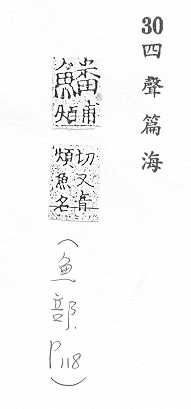 30四聲篇海
鱕
甫煩
切又音
煩魚名
(魚部.P118)